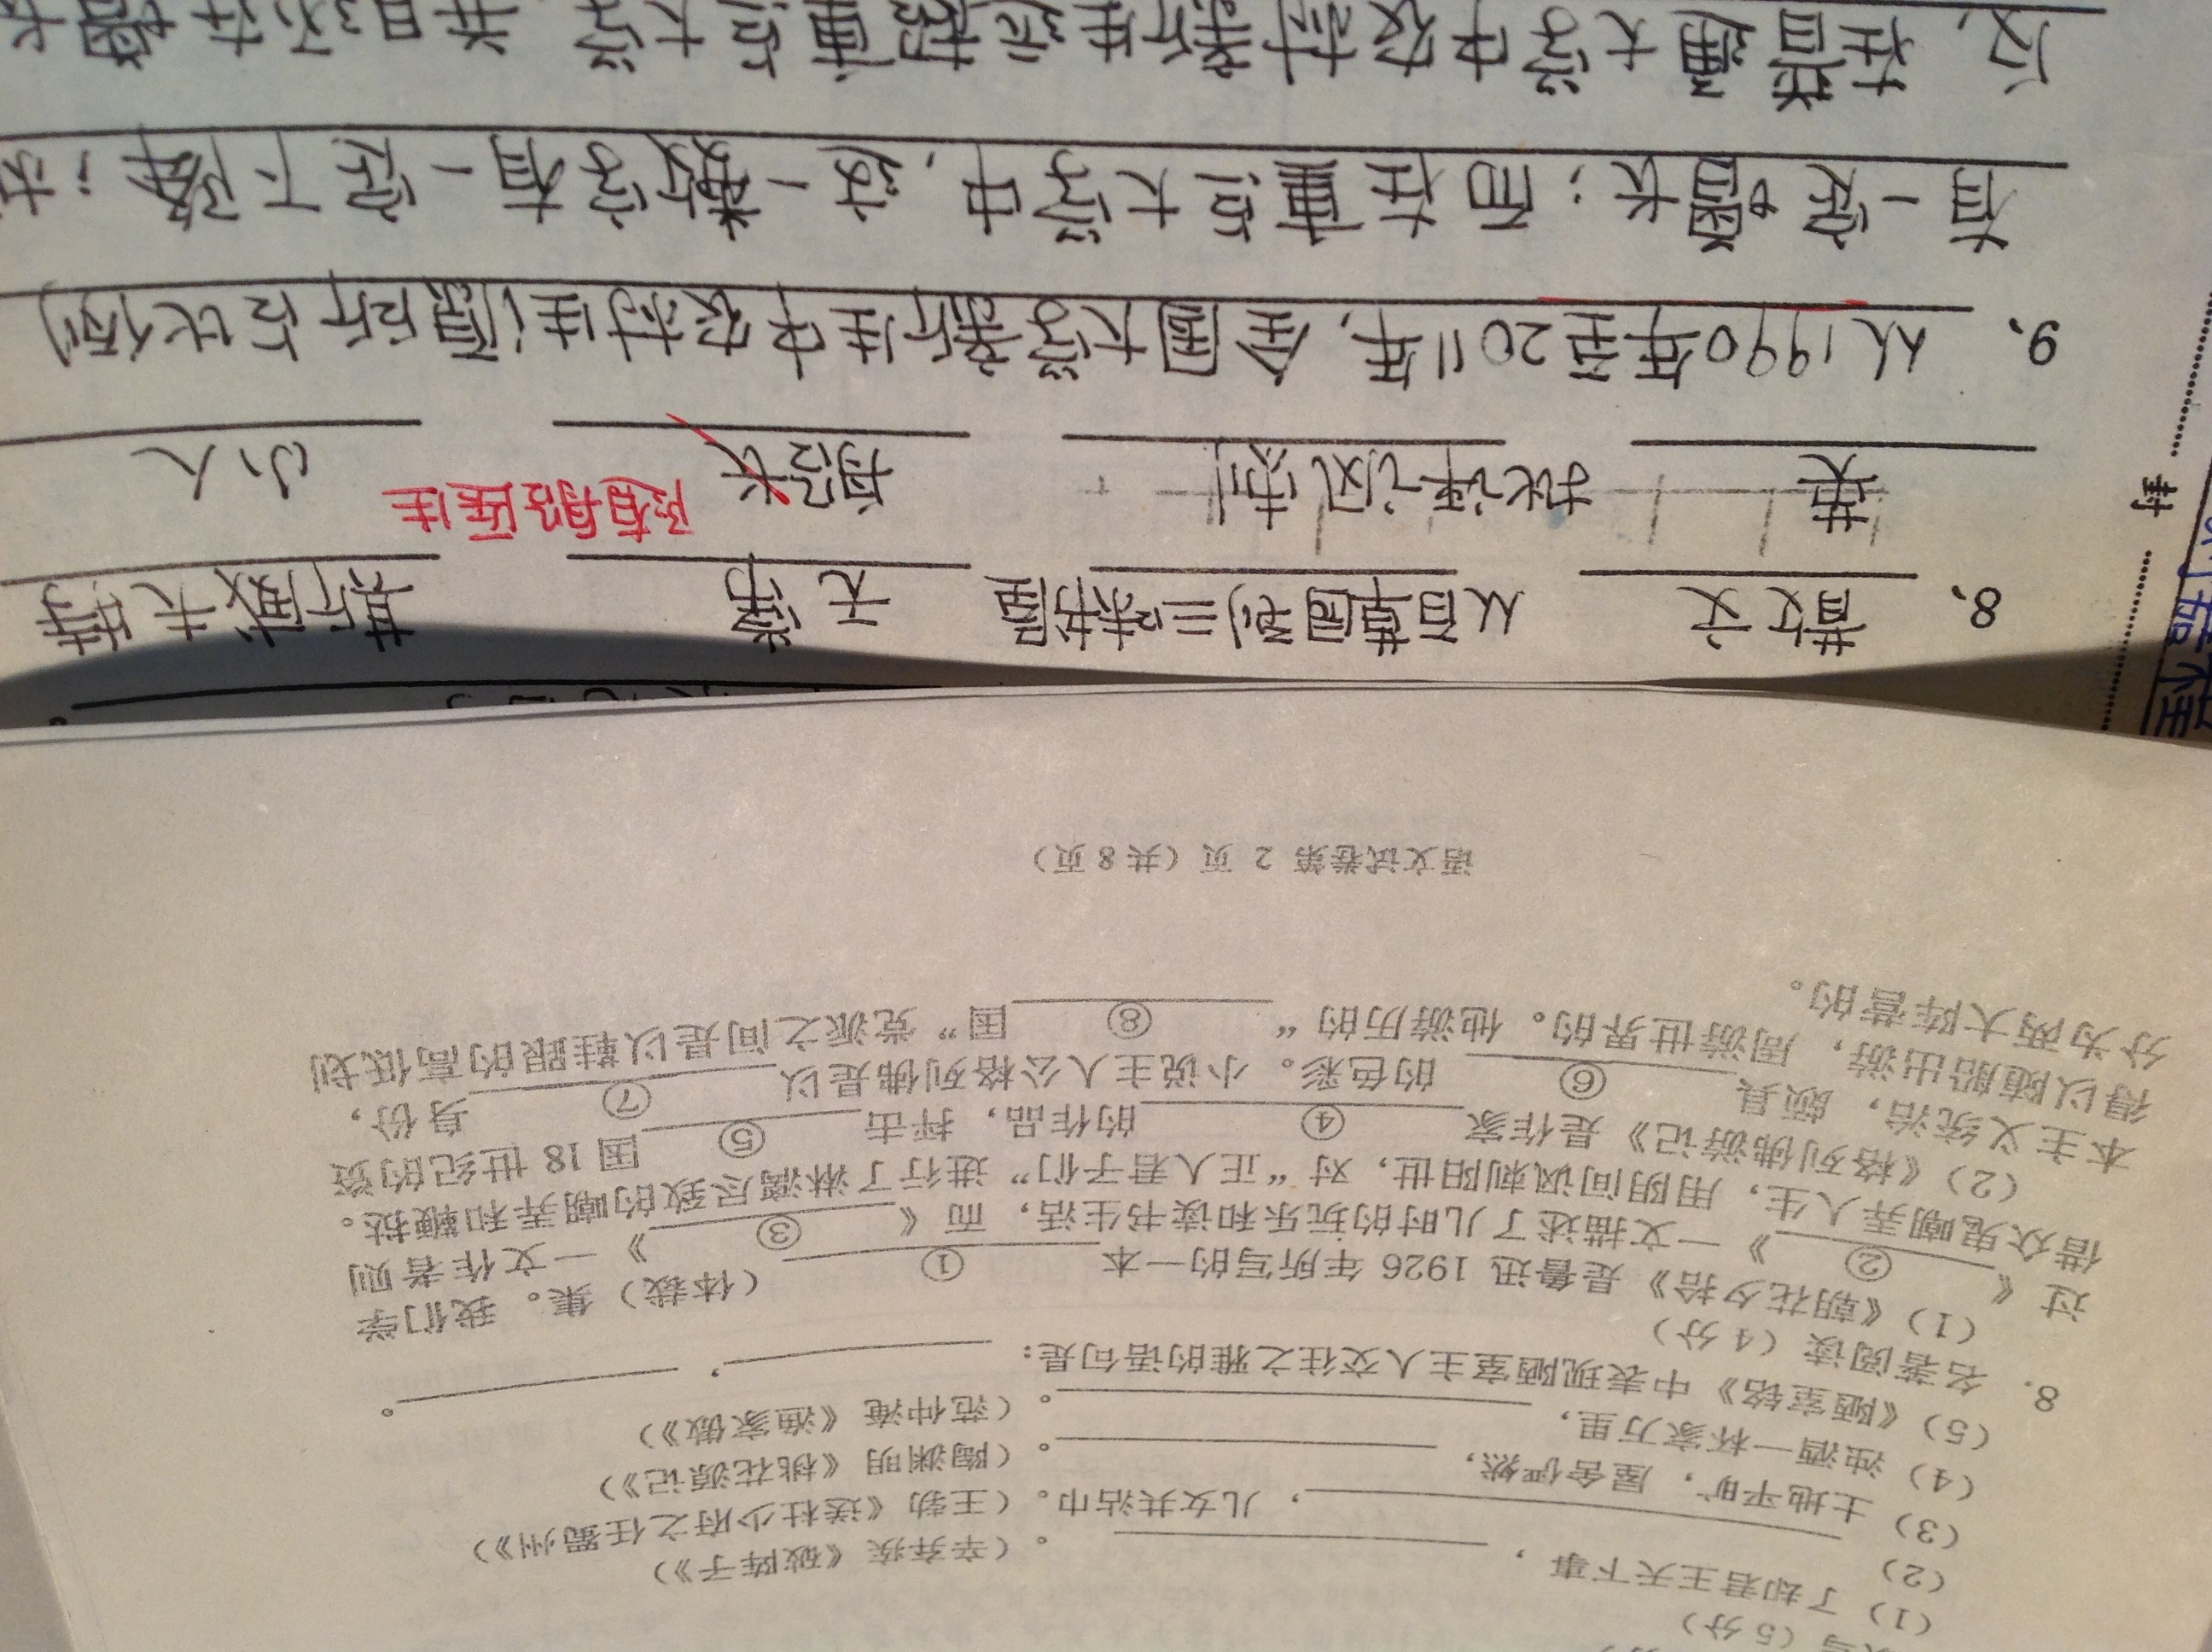 写（5 分）
（1）了却君王天下事，。（辛弃疾《破阵子》）
（2），儿女共沾巾。（王勃《送杜少府之任蜀州》）
（3）土地平旷，屋舍俨然，。（陶渊明《桃花源记》）
（4）浊酒一杯家万里，。（范仲淹《渔家傲》）
（5）《陋室铭》中表现陋室主人交往之雅的语句是：，。
8. 名著阅读（4 分）
（1）《朝花夕拾》是鲁迅 1926 年所写的一本①（体裁）集。我们学
过《②》一文描述了儿时的玩乐和读书生活，而《③》一文作者则
借众鬼嘲弄人生，用阴间讽刺阳世，对“正人君子们”进行了淋漓尽致的嘲弄和鞭挞。
（2）《格列佛游记》是作家④的作品，抨击⑤国 18 世纪的资
本主义统治，颇具⑥的色彩。小说主人公格列佛是以⑦身份，
得以随船出游，周游世界的。他游历的“⑧国”党派之间是以鞋跟的高低划
分为两大阵营的。
语文试卷第 2 页（共 8 页）
8、散文 从百草园到三味书屋 无常 斯威夫特
英 批评讽刺 船长 随船医生 小人
封
9、从1990年至2011年，全国大学新生中农村生源所占比例
有一定增长；而在重点大学中，这一数字有一定下降；
反，在普通大学中农村新生远超重点大学，并且还在增长